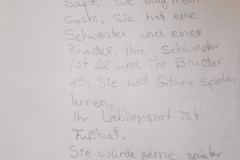 Saft. Sie mag kein
Sushi. Sie hat eine
Schwester und einen
Bruder. Ihre Schwester
ist 22 und ihr Bruder
19. Sie will Gitarre spielen
lernen.
Ihr Lieblingssport ist
Fußball.
Sie würde gerne später